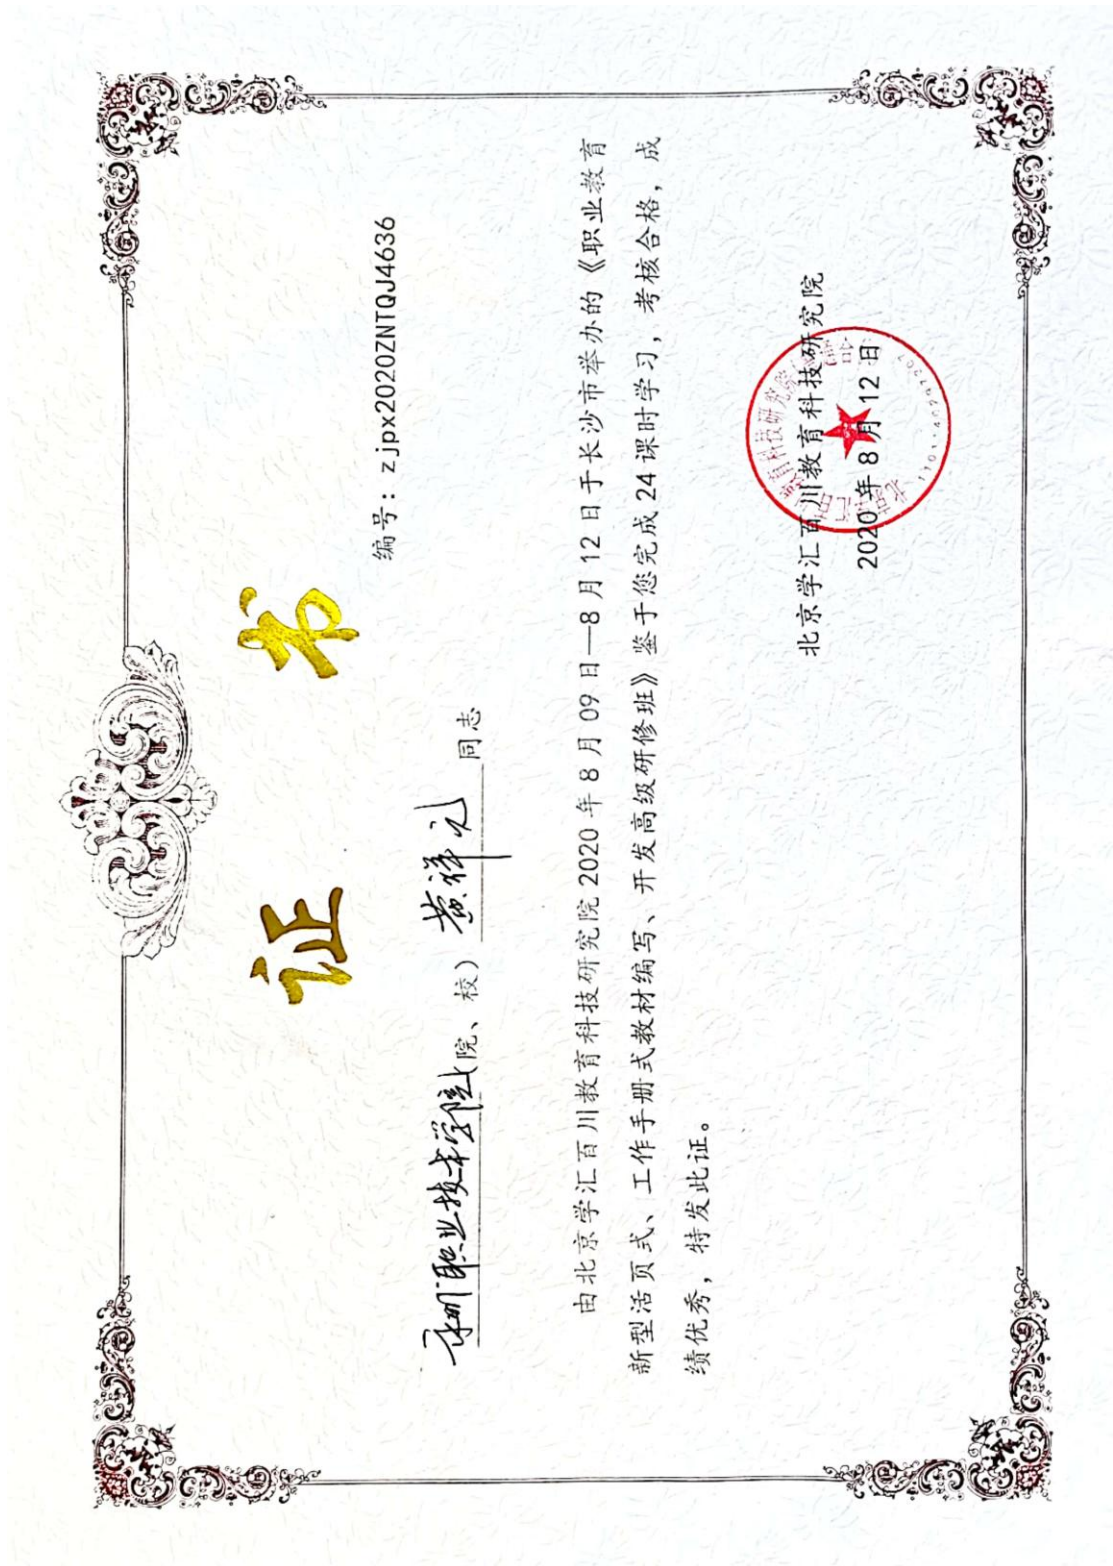 证书
编号：zjpx2020ZNTQJ4636
永州职业技术学院(院、校)黄祥元同志
由北京学汇百川教育科技研究院2020年8月09日—8月12日于长沙市举办的《职业教育
新型活页式、工作手册式教材编写、开发高级研修班》鉴于您完成24课时学习，考核合格，成
绩优秀，特发此证。
北京学汇百川教育科技研究院
2020年8月12日